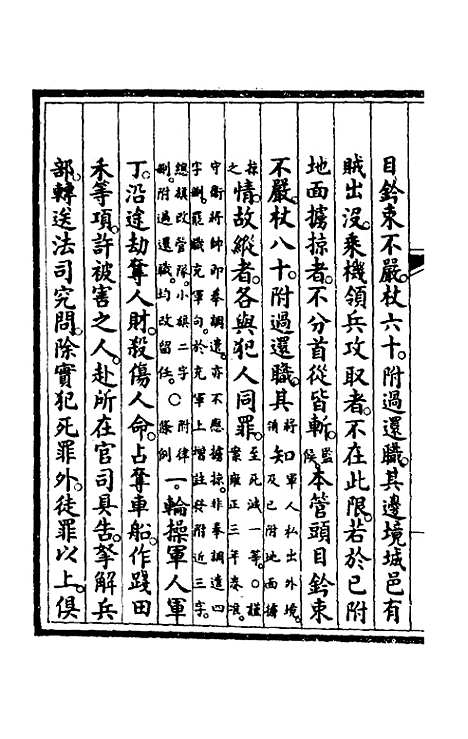 目鈐束不嚴。杖六十。附過還職。其邊境城邑有
賊出沒。乘機領兵攻取者。不在此限。若於已附
地面擄掠者。不分首從皆斬。監候。本管頭目鈐束
不嚴。杖八十。附過還職。其將領知軍人私出外境。及已附地面擄
掠之情故縱者。各與犯人同罪。至死減一等。○謹案雍正三年奏准。
守衛將帥即奉調遣。亦不應擄掠。非奉調遣四
字刪。罷職充軍句。於充軍上增註發附近三字。
總旗改營隊。小旗二字刪。附過還職。均改留任。○附律條例 一。輪操軍人軍
丁。沿途劫奪人財。殺傷人命。占奪車船。作踐田
禾等項。許被害之人。赴所在官司具告。拏解兵
部。轉送法司究問。除實犯死罪外。徒罪以上。俱